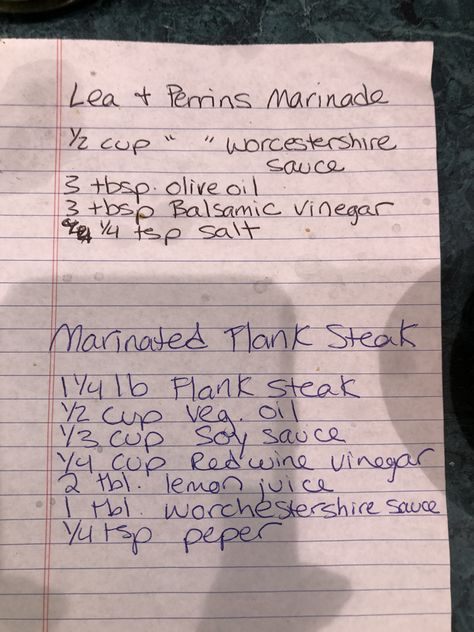 Lea + Perrins Marinade
1/2 cup " " Worcestershire
sauce
3 tbsp. olive oil
3 tbsp Balsamic vinegar
1/4 tsp salt
Marinated Flank Steak
1 1/4 lb Flank steak
1/2 cup veg. oil
1/3 cup Soy sauce
1/4 cup Red wine vinegar
2 tbl. lemon juice
1 tbl. worchestershire sauce
1/4 tsp peper